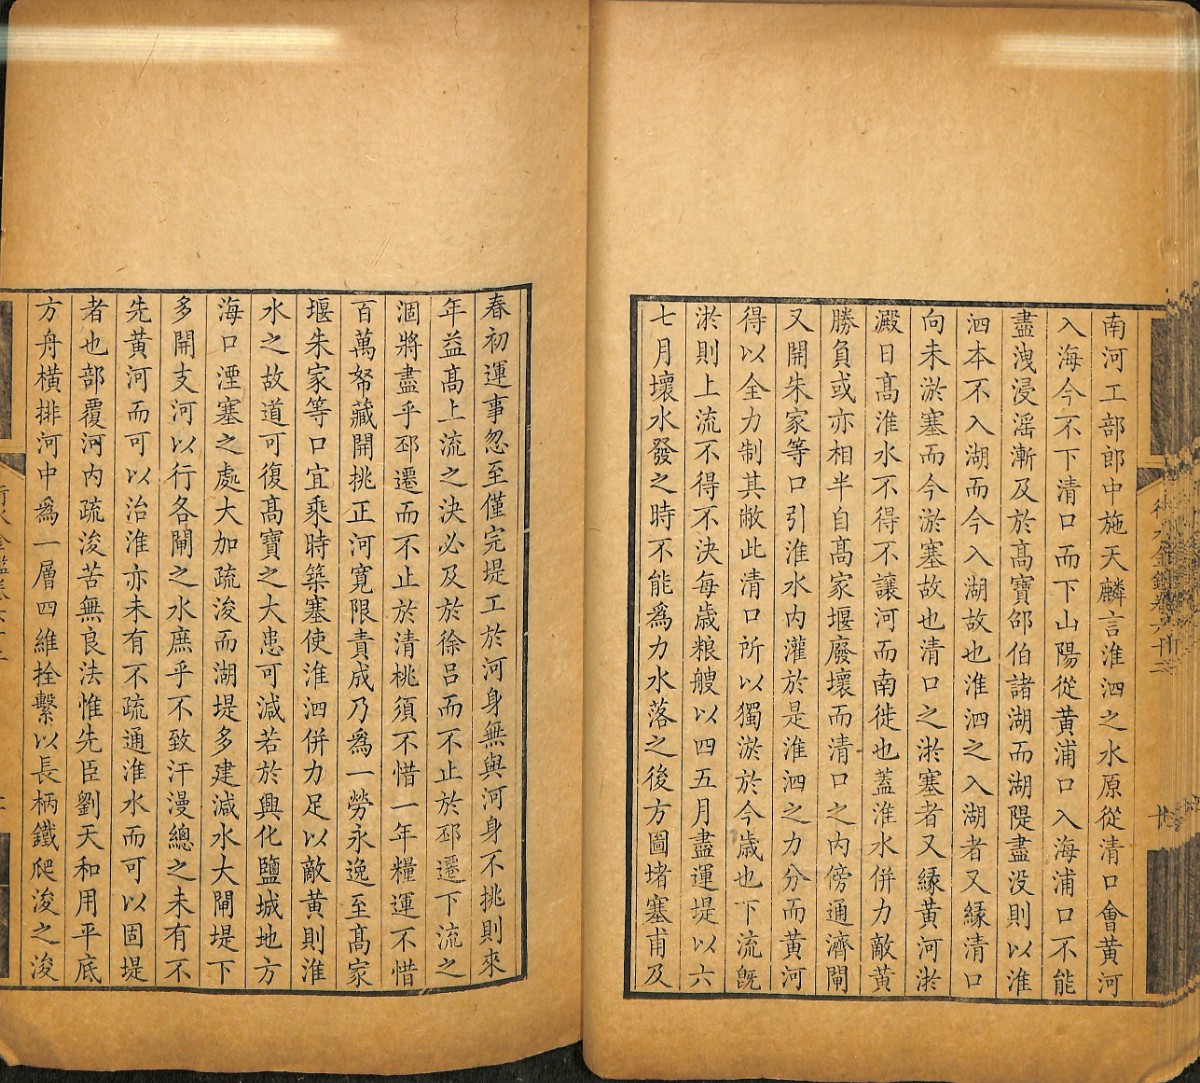 南河工部郎中施天麟言淮泗之水原從清口會黃河
入海今不下清口而下山陽從黃浦口入海浦口不能
盡洩浸滛漸及於髙寶邵伯諸湖而湖隄盡没則以淮
泗本不入湖而今入湖故也淮泗之入湖者又縁清口
向未淤塞而今淤塞故也清口之淤塞者又縁黃河淤
澱日髙淮水不得不讓河而南徙也蓋淮水併力敵黃
勝負或亦相半自髙家堰廢壞而清口之内傍通濟閘
又開朱家等口引淮水内灌於是淮泗之力分而黃河
得以全力制其敝此清口所以獨淤於今歳也下流旣
淤則上流不得不決每歳粮艘以四五月盡運堤以六
七月壞水發之時不能爲力水落之後方圖堵塞甫及
春初運事忽至僅完堤工於河身無與河身不挑則來
年益髙上流之決必及於徐吕而不止於邳遷下流之
涸將盡乎邳遷而不止於清桃須不惜一年糧運不惜
百萬帑藏開挑正河寛限責成乃爲一勞永逸至髙家
堰朱家等口宜乘時築塞使淮泗併力足以敵黃則淮
水之故道可復髙寶之大患可減若於興化鹽城地方
海口湮塞之處大加疏浚而湖堤多建減水大閘堤下
多開支河以行各閘之水庶乎不致汗漫總之未有不
先黃河而可以治淮亦未有不疏通淮水而可以固堤
者也部覆河内疏浚苦無良法惟先臣劉天和用平底
方舟横排河中爲一層四維拴繫以長柄鐵爬浚之浚